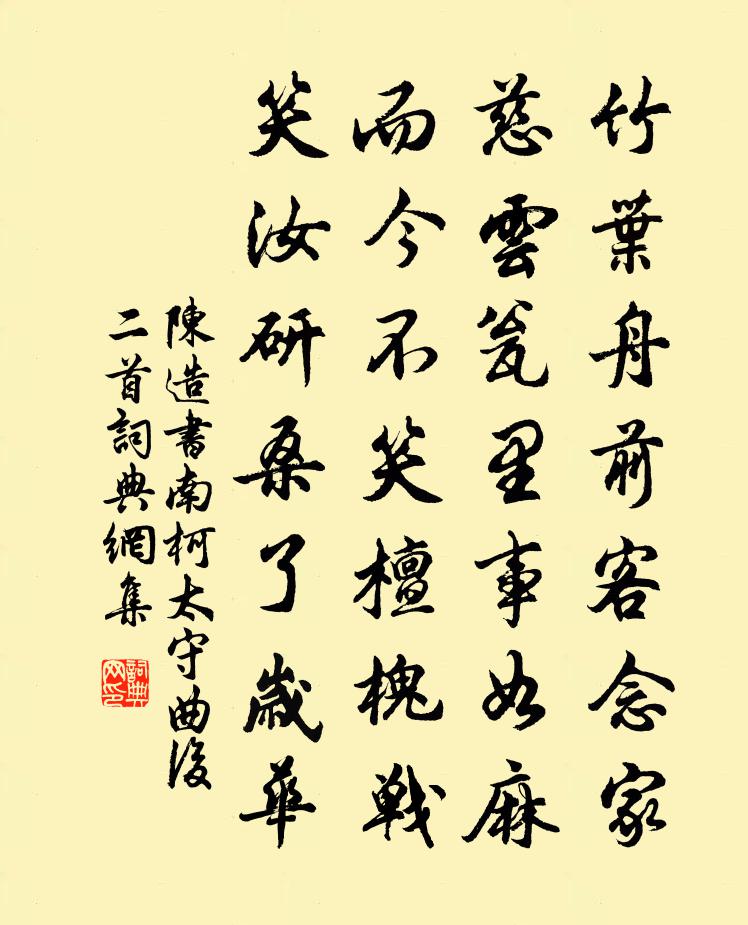 竹葉舟前客念家
慈雲瓮里事如麻
而今不笑檀槐戦
笑汝研桑了歲華
陳造書南柯太守曲後
二首詞典網集
詞典网印